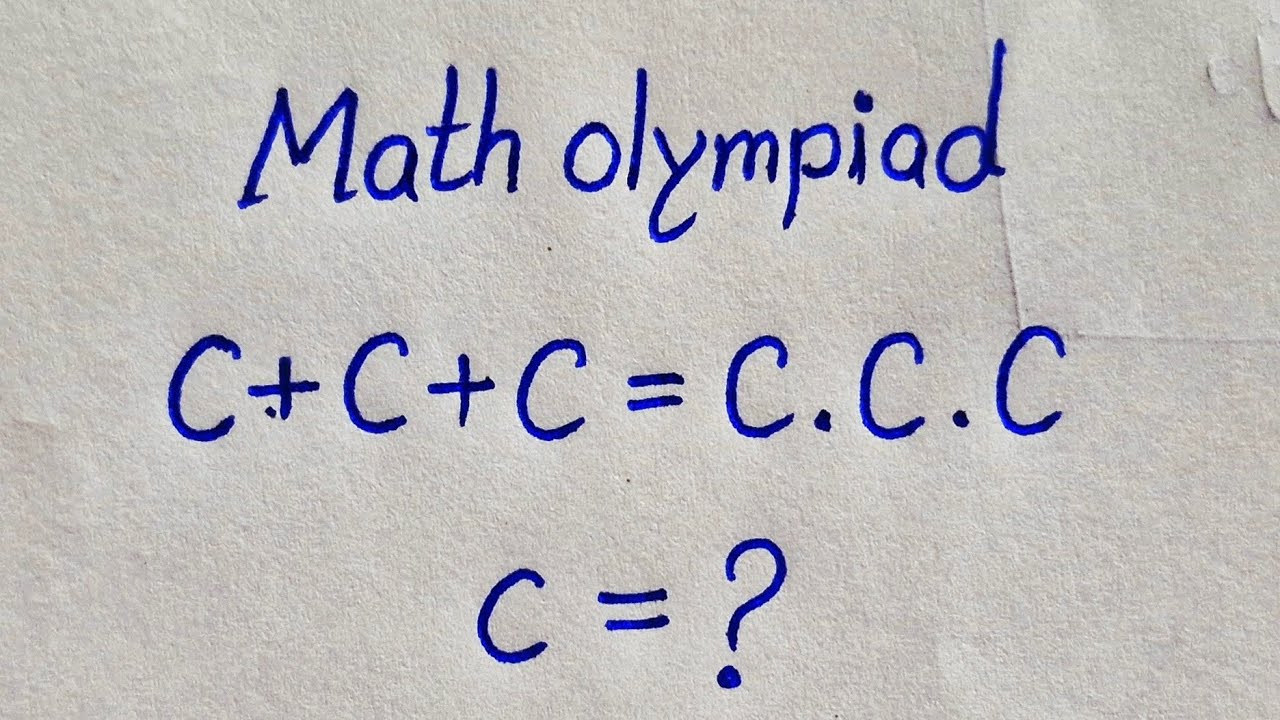 Math olympiad
C+C+C=C.C.C
C=?